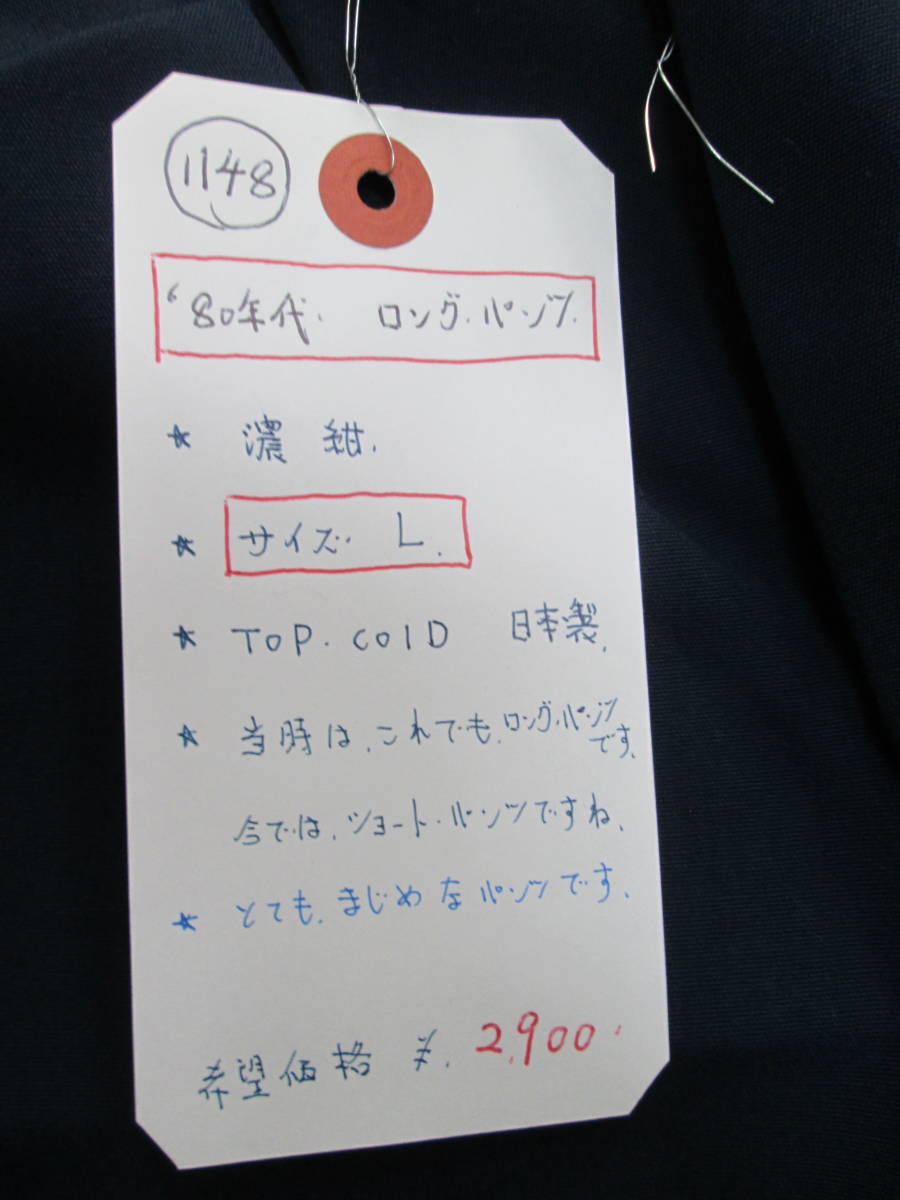 1148
'80年代. ロング.パンツ.
★ 濃紺.
★ サイズ. L.
★ TOP. COlD 日本製.
★ 当時は、これでも、ロング.パンツです、
今では、ショート.パンツですね、
★ とても、まじめなパンツです、
希望価格 ¥. 2,900.